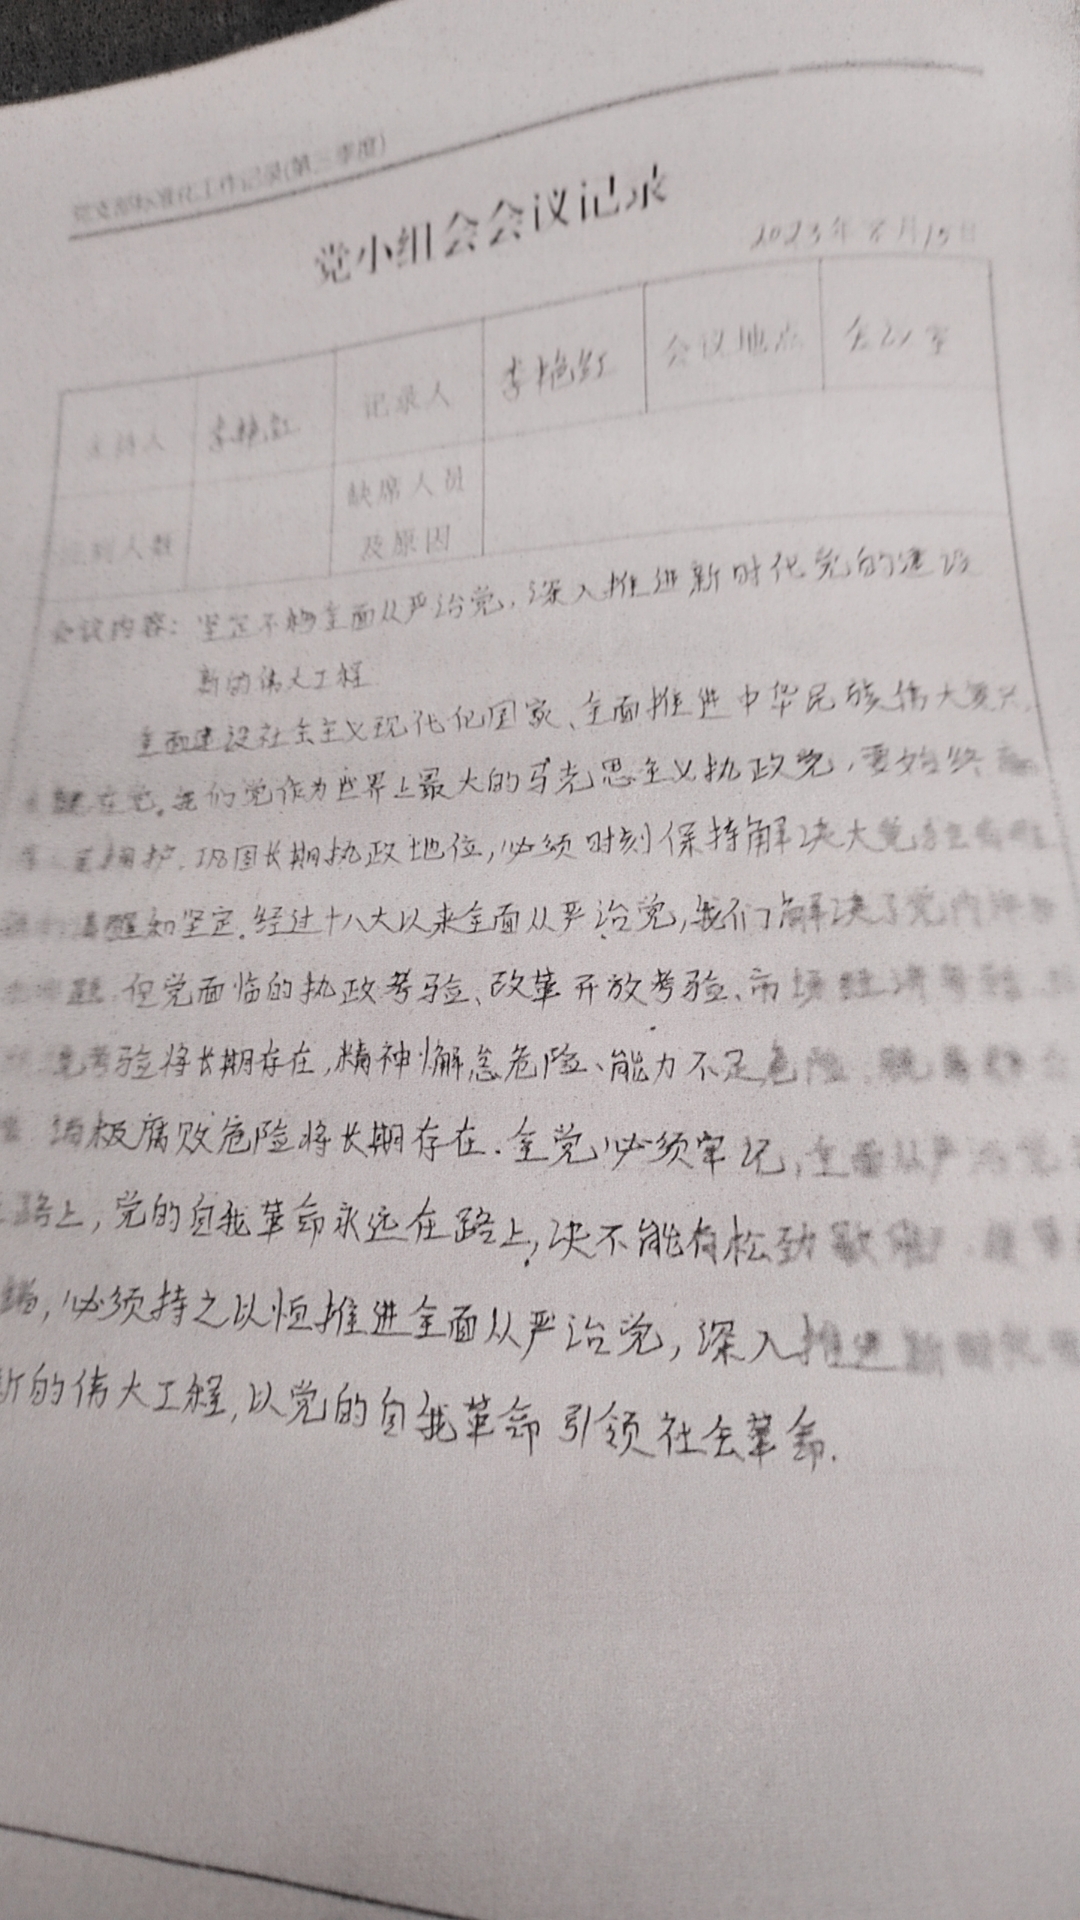 党小组会会议记录
2023年8月15日
主持人 李艳红 记录人 李艳红 会议地点 会议室
到人数 缺席人员及原因
会议内容：坚定不移全面从严治党，深入推进新时代党的建设
新的伟大工程
全面建设社会主义现代化国家、全面推进中华民族伟大复兴，
关键在党。我们党作为世界上最大的马克思主义执政党，要始终赢
拥护、巩固长期执政地位，必须时刻保持解决大党
清醒和坚定．经过十八大以来全面从严治党，我们解决了党内
题 但党面临的执政考验、改革开放考验、市场经济考验
境考验将长期存在，精神懈怠危险、能力不足危险、脱离
消极腐败危险将长期存在．全党必须牢记，全面从严治党
路上，党的自我革命永远在路上，决不能有松劲歇
必须持之以恒推进全面从严治党，深入推进新时代
新的伟大工程，以党的自我革命引领社会革命．